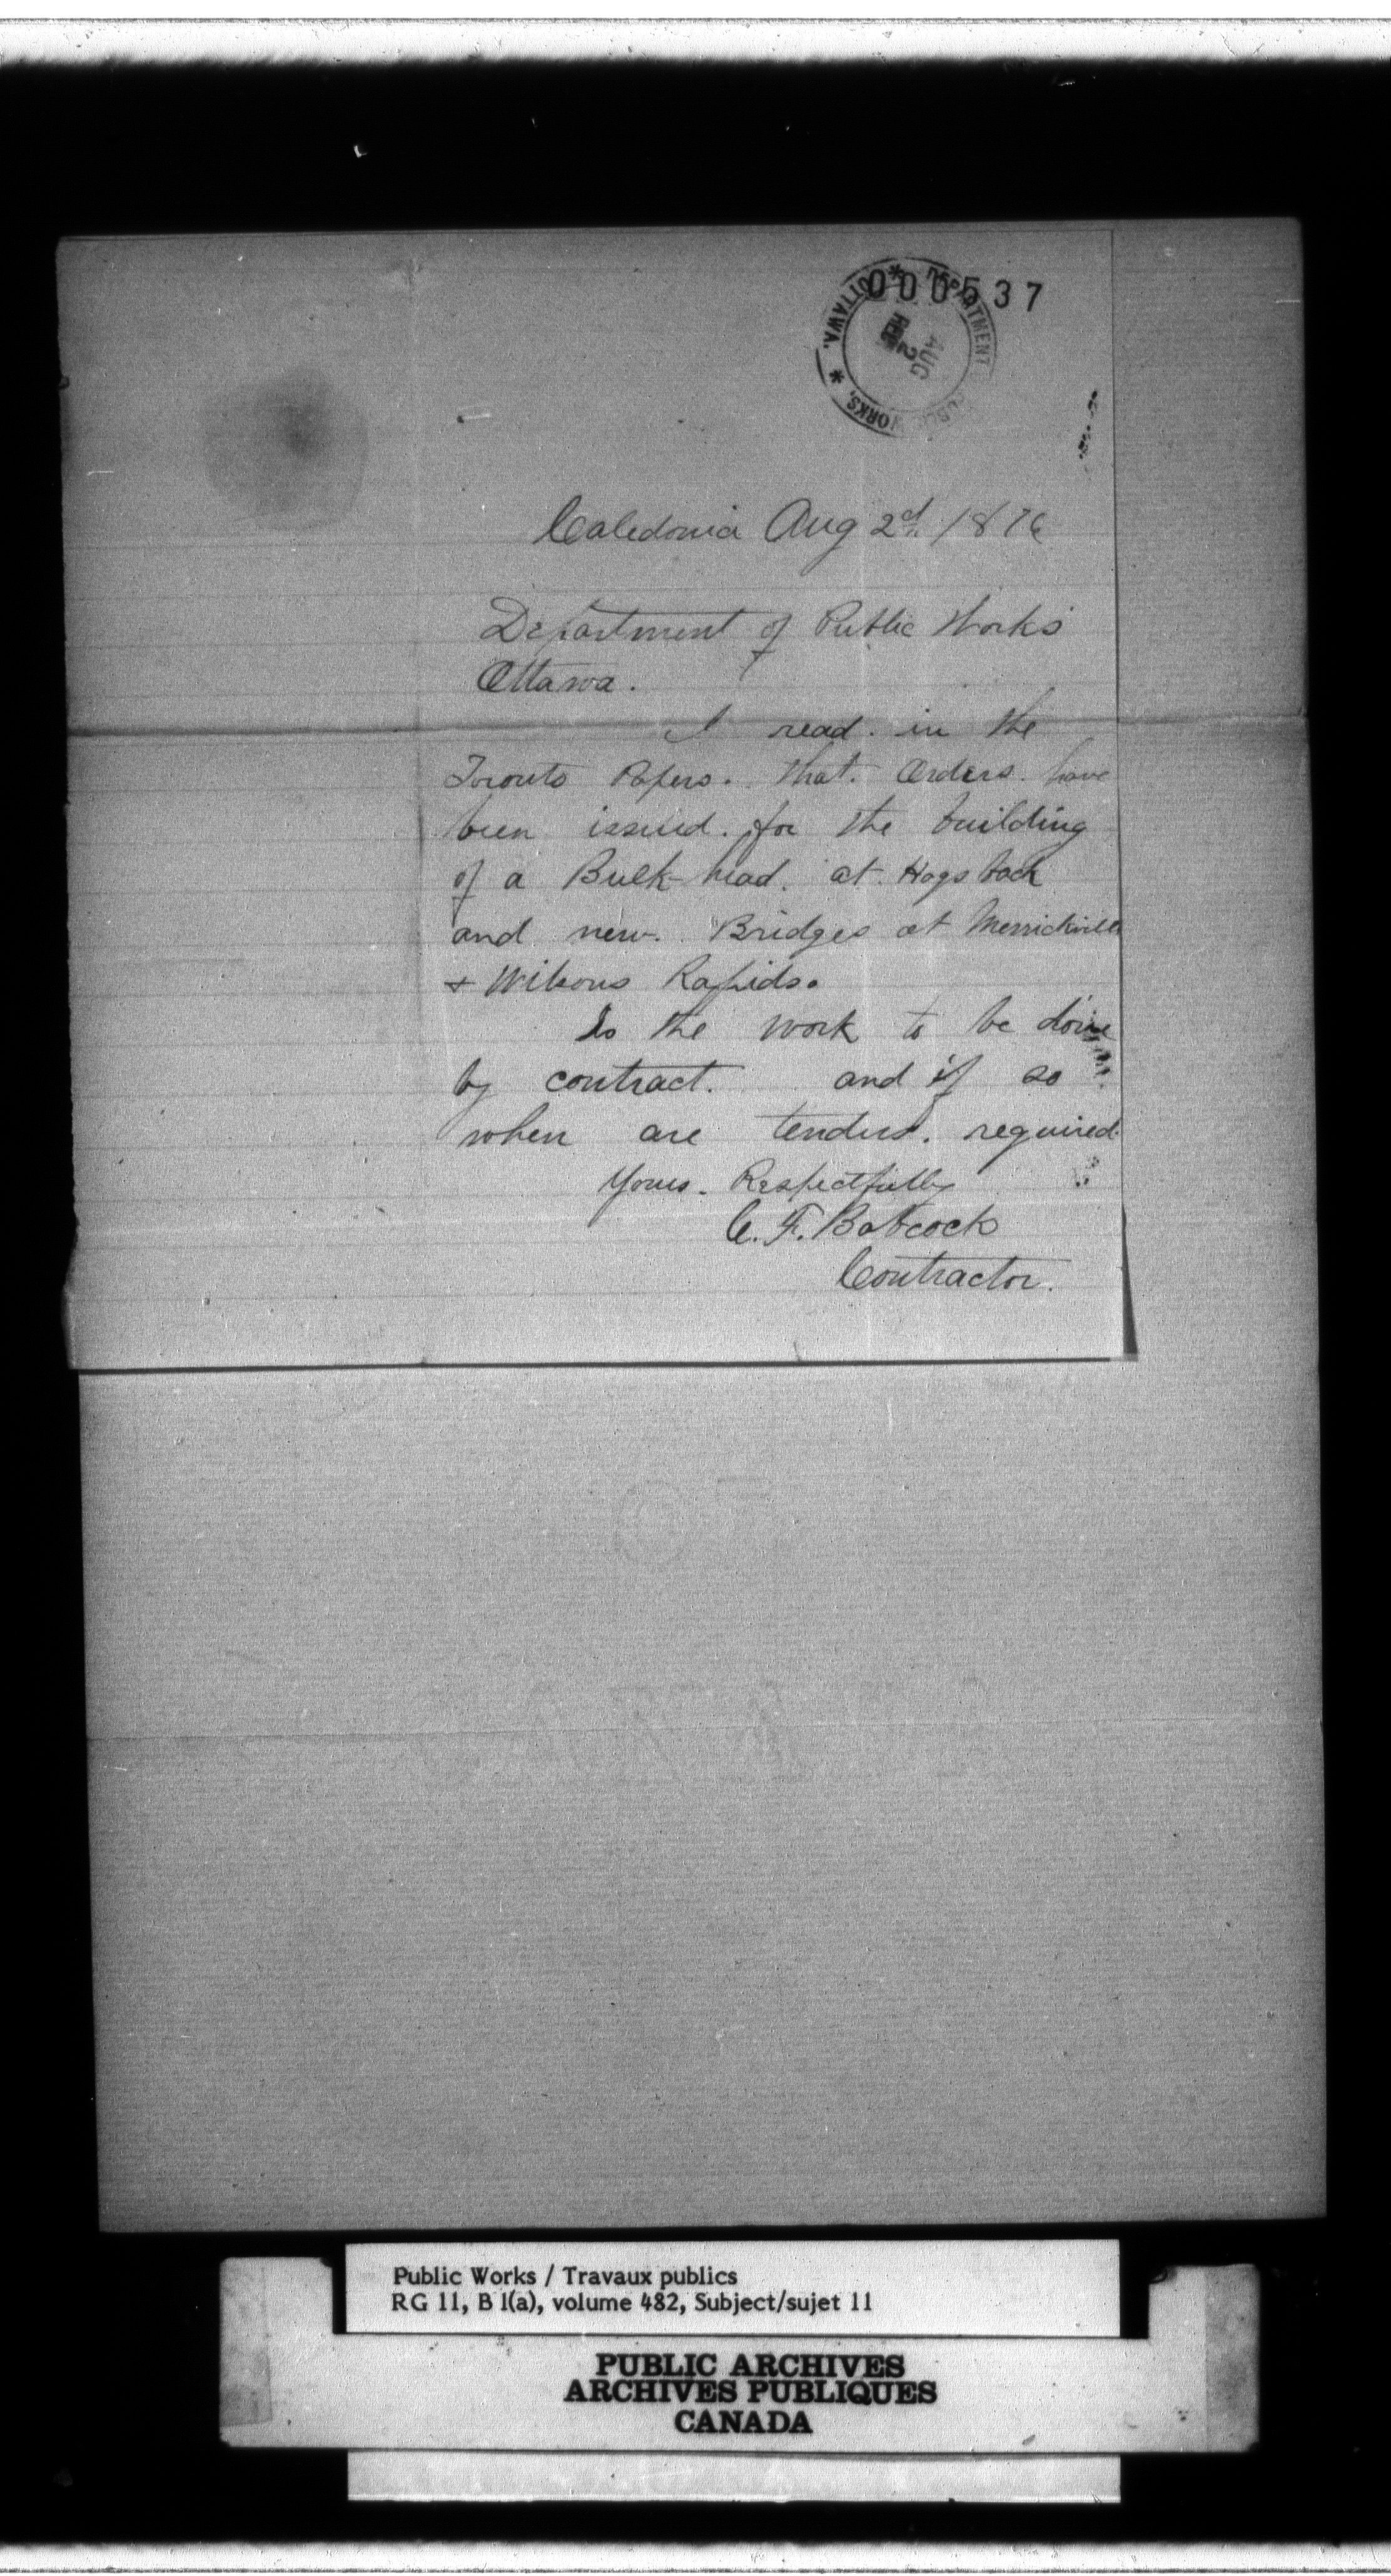 000537
DEPARTMENT PUBLIC WORKS, * OTTAWA. *
AUG 2
REC
Caledonia Aug 2d 1876
Department of Public Works
Ottawa.
I read. in the
Toronto Papers. that. Orders. have
been issued. for the building
of a Bulk-head. at Hogsback
and new. Bridges at Merrickville
& Wilsons Rapids.
Is the work to be done
by contract. and if so
when are tenders. required.
Yours. Respectfully
C. F. Babcock
Contractor.
Public Works / Travaux publics
RG 11, B 1(a), volume 482, Subject/sujet 11
PUBLIC ARCHIVES
ARCHIVES PUBLIQUES
CANADA